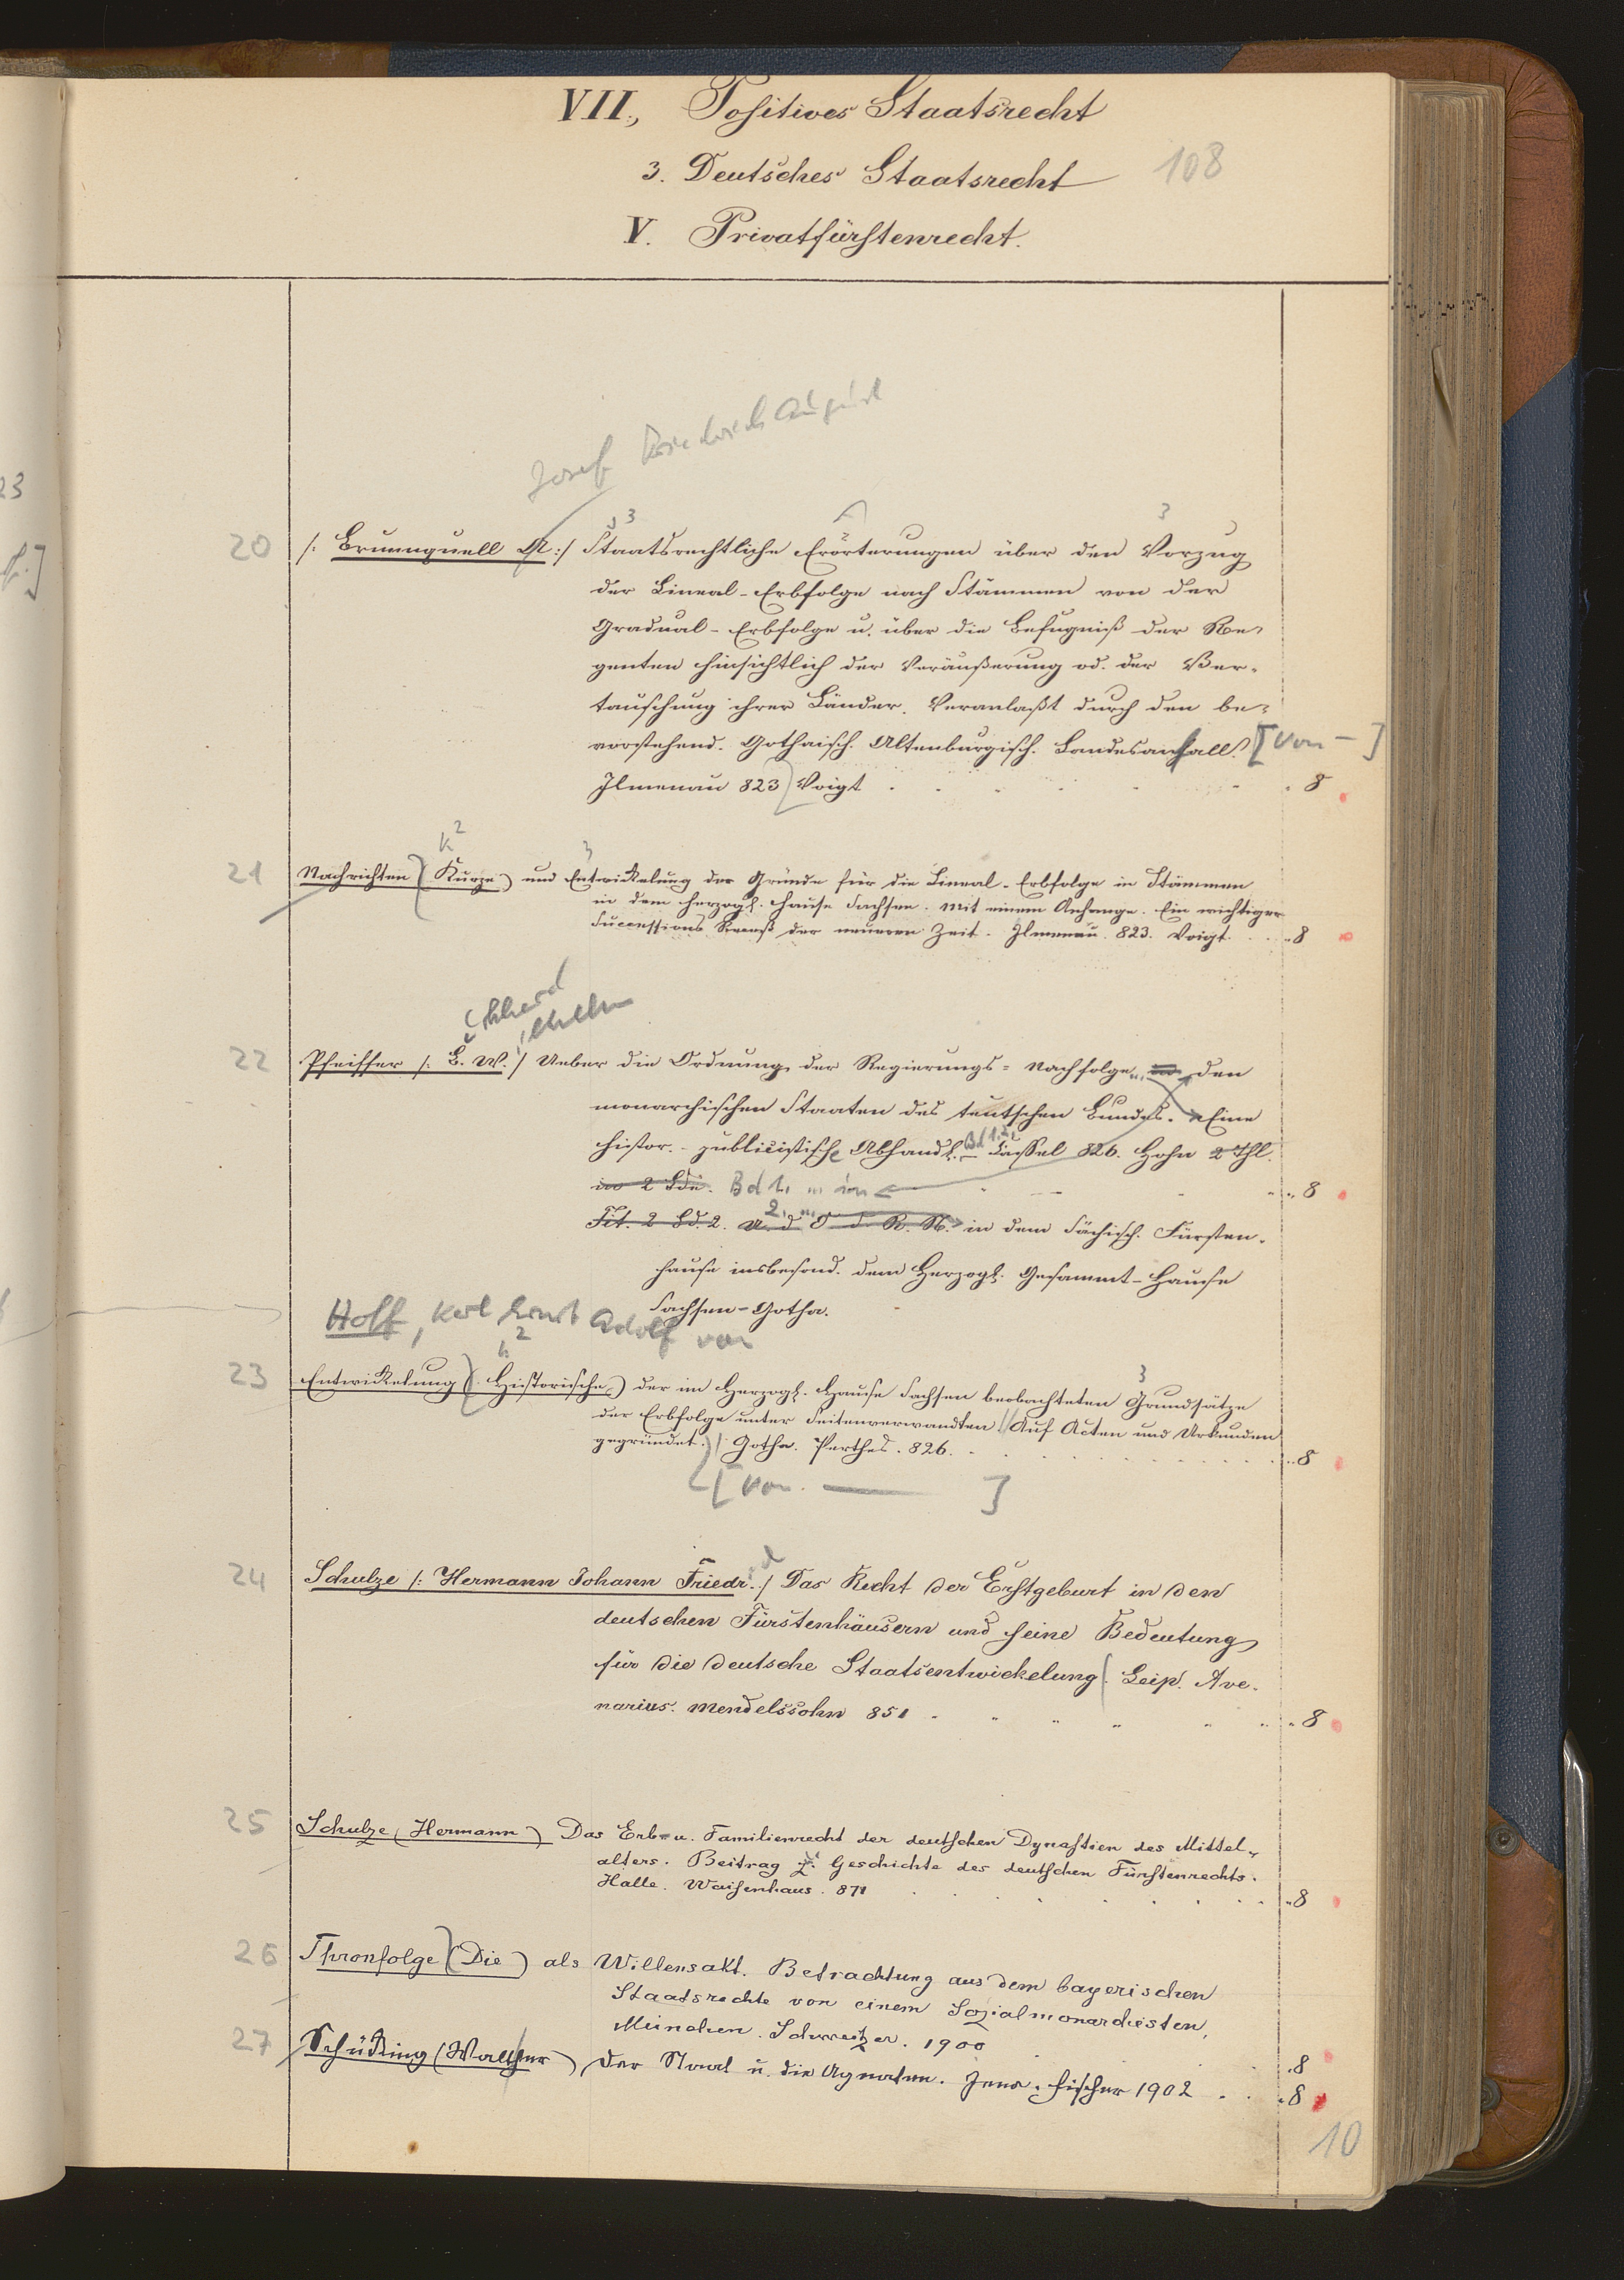 VII., Positives Staatsrecht
3. Deutsches Staatsrecht 108
V. Privatfürstenrecht.
Josef Friedrich August
20 /: Brunnquell A :/ Staatsrechtliche Erörterungen über den Vorzug
der Lineal-Erbfolge nach Stämmen von der
Gradual-Erbfolge u. über die Befugniß der Re-
genten hinsichtlich der Veräußerung od. der Ver-
tauschung ihrer Länder. Veranlaßt durch den be-
vorstehend. Gothaisch. Altenburgisch. Landesanfall. [von - ]
Ilmenau 823 Voigt . . . 8
21 Nachrichten (Kurze) und Entwickelung der Gründe für die Lineal-Erbfolge in Stämmen
in dem herzogl. Hause Sachsen. Mit einem Anhange. Ein wichtiger
Successions Receß der neueren Zeit. Ilmenau. 823. Voigt. . . 8
22 Pfeiffer /: B. W. :/ Ueber die Ordnung der Regierungs=Nachfolge in den
monarchischen Staaten des teutschen Bundes. Eine
histor.-publicistische Abhandl. Bd 1. 2. Cassel 826. Hohn 2 Thl.
in 2 Bde. Bd 1. 8
Tit. 2 Bd. 2. U. d O d R. N. in dem Sächsisch. Fürsten-
hause insbesond. dem Herzogl. Gesammt-Hause
Sachsen-Gotha.
Hoff, Karl Ernst Adolf von
23 Entwickelung (Historische) der im Herzogl. Hause Sachsen beobachteten Grundsätze
der Erbfolge unter Seitenverwandten. Auf Acten und Urkunden
gegründet. Gotha. Perthes. 826. . . . 8
[von. — ]
24 Schulze /: Hermann Johann Friedr. :/ Das Recht der Erstgeburt in den
deutschen Fürstenhäusern und seine Bedeutung
für die deutsche Staatsentwickelung. Leip. Ave-
narius. Mendelssohn 851 . . . 8
25 Schulze (Hermann) Das Erb= u. Familienrecht der deutschen Dynastien des Mittel-
alters. Beitrag z. Geschichte des deutschen Fürstenrechts.
Halle. Waisenhaus. 871 . . . 8
26 Thronfolge (Die) als Willensakt. Betrachtung aus dem bayerischen
Staatsrechte von einem Sozialmonarchisten,
München. Schweitzer. 1900 . 8
27 Schücking (Walther) Der Staat u. die Agnaten. Jena: Fischer 1902 . . 8
10